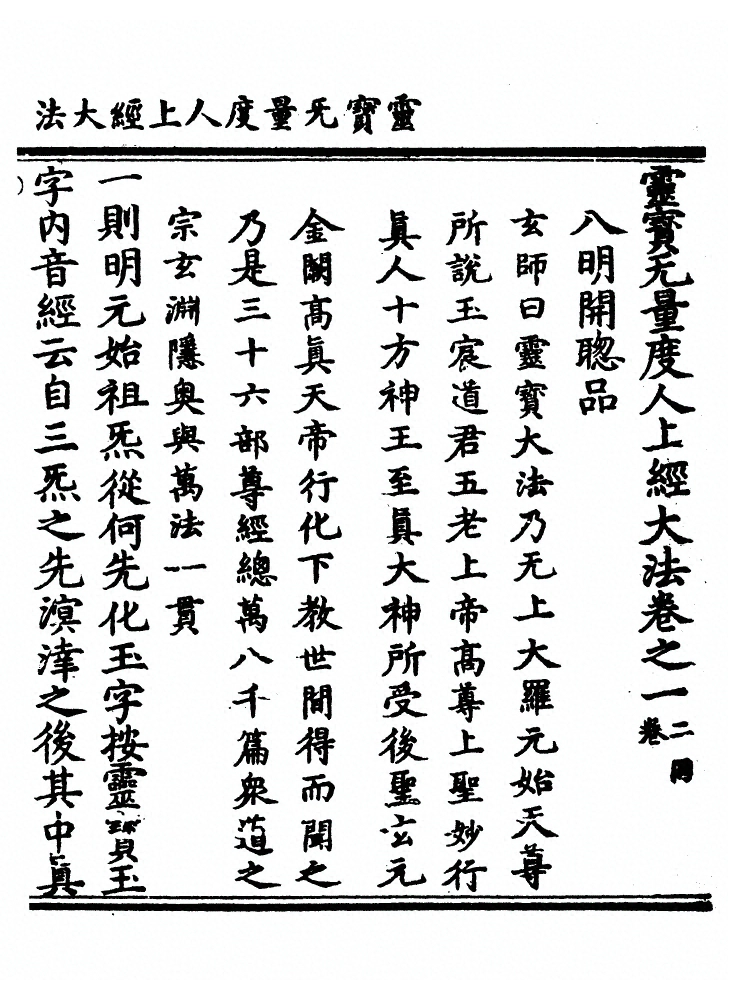 靈寶无量度人上經大法
靈寶无量度人上經大法卷之一 二卷同
八明開聰品
玄師曰靈寶大法乃无上大羅元始天尊
所說玉宸道君五老上帝高尊上聖妙行
眞人十方神王至眞大神所受後聖玄元
金闕高眞天帝行化下教世間得而聞之
乃是三十六部尊經總萬八千篇衆道之
宗玄淵隱奥與萬法一貫
一則明元始祖炁從何先化玉字按靈寶玉
字内音經云自三炁之先溟涬之後其中眞